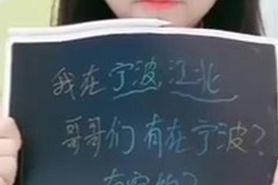 我在宁波江北
哥哥们有在宁波？